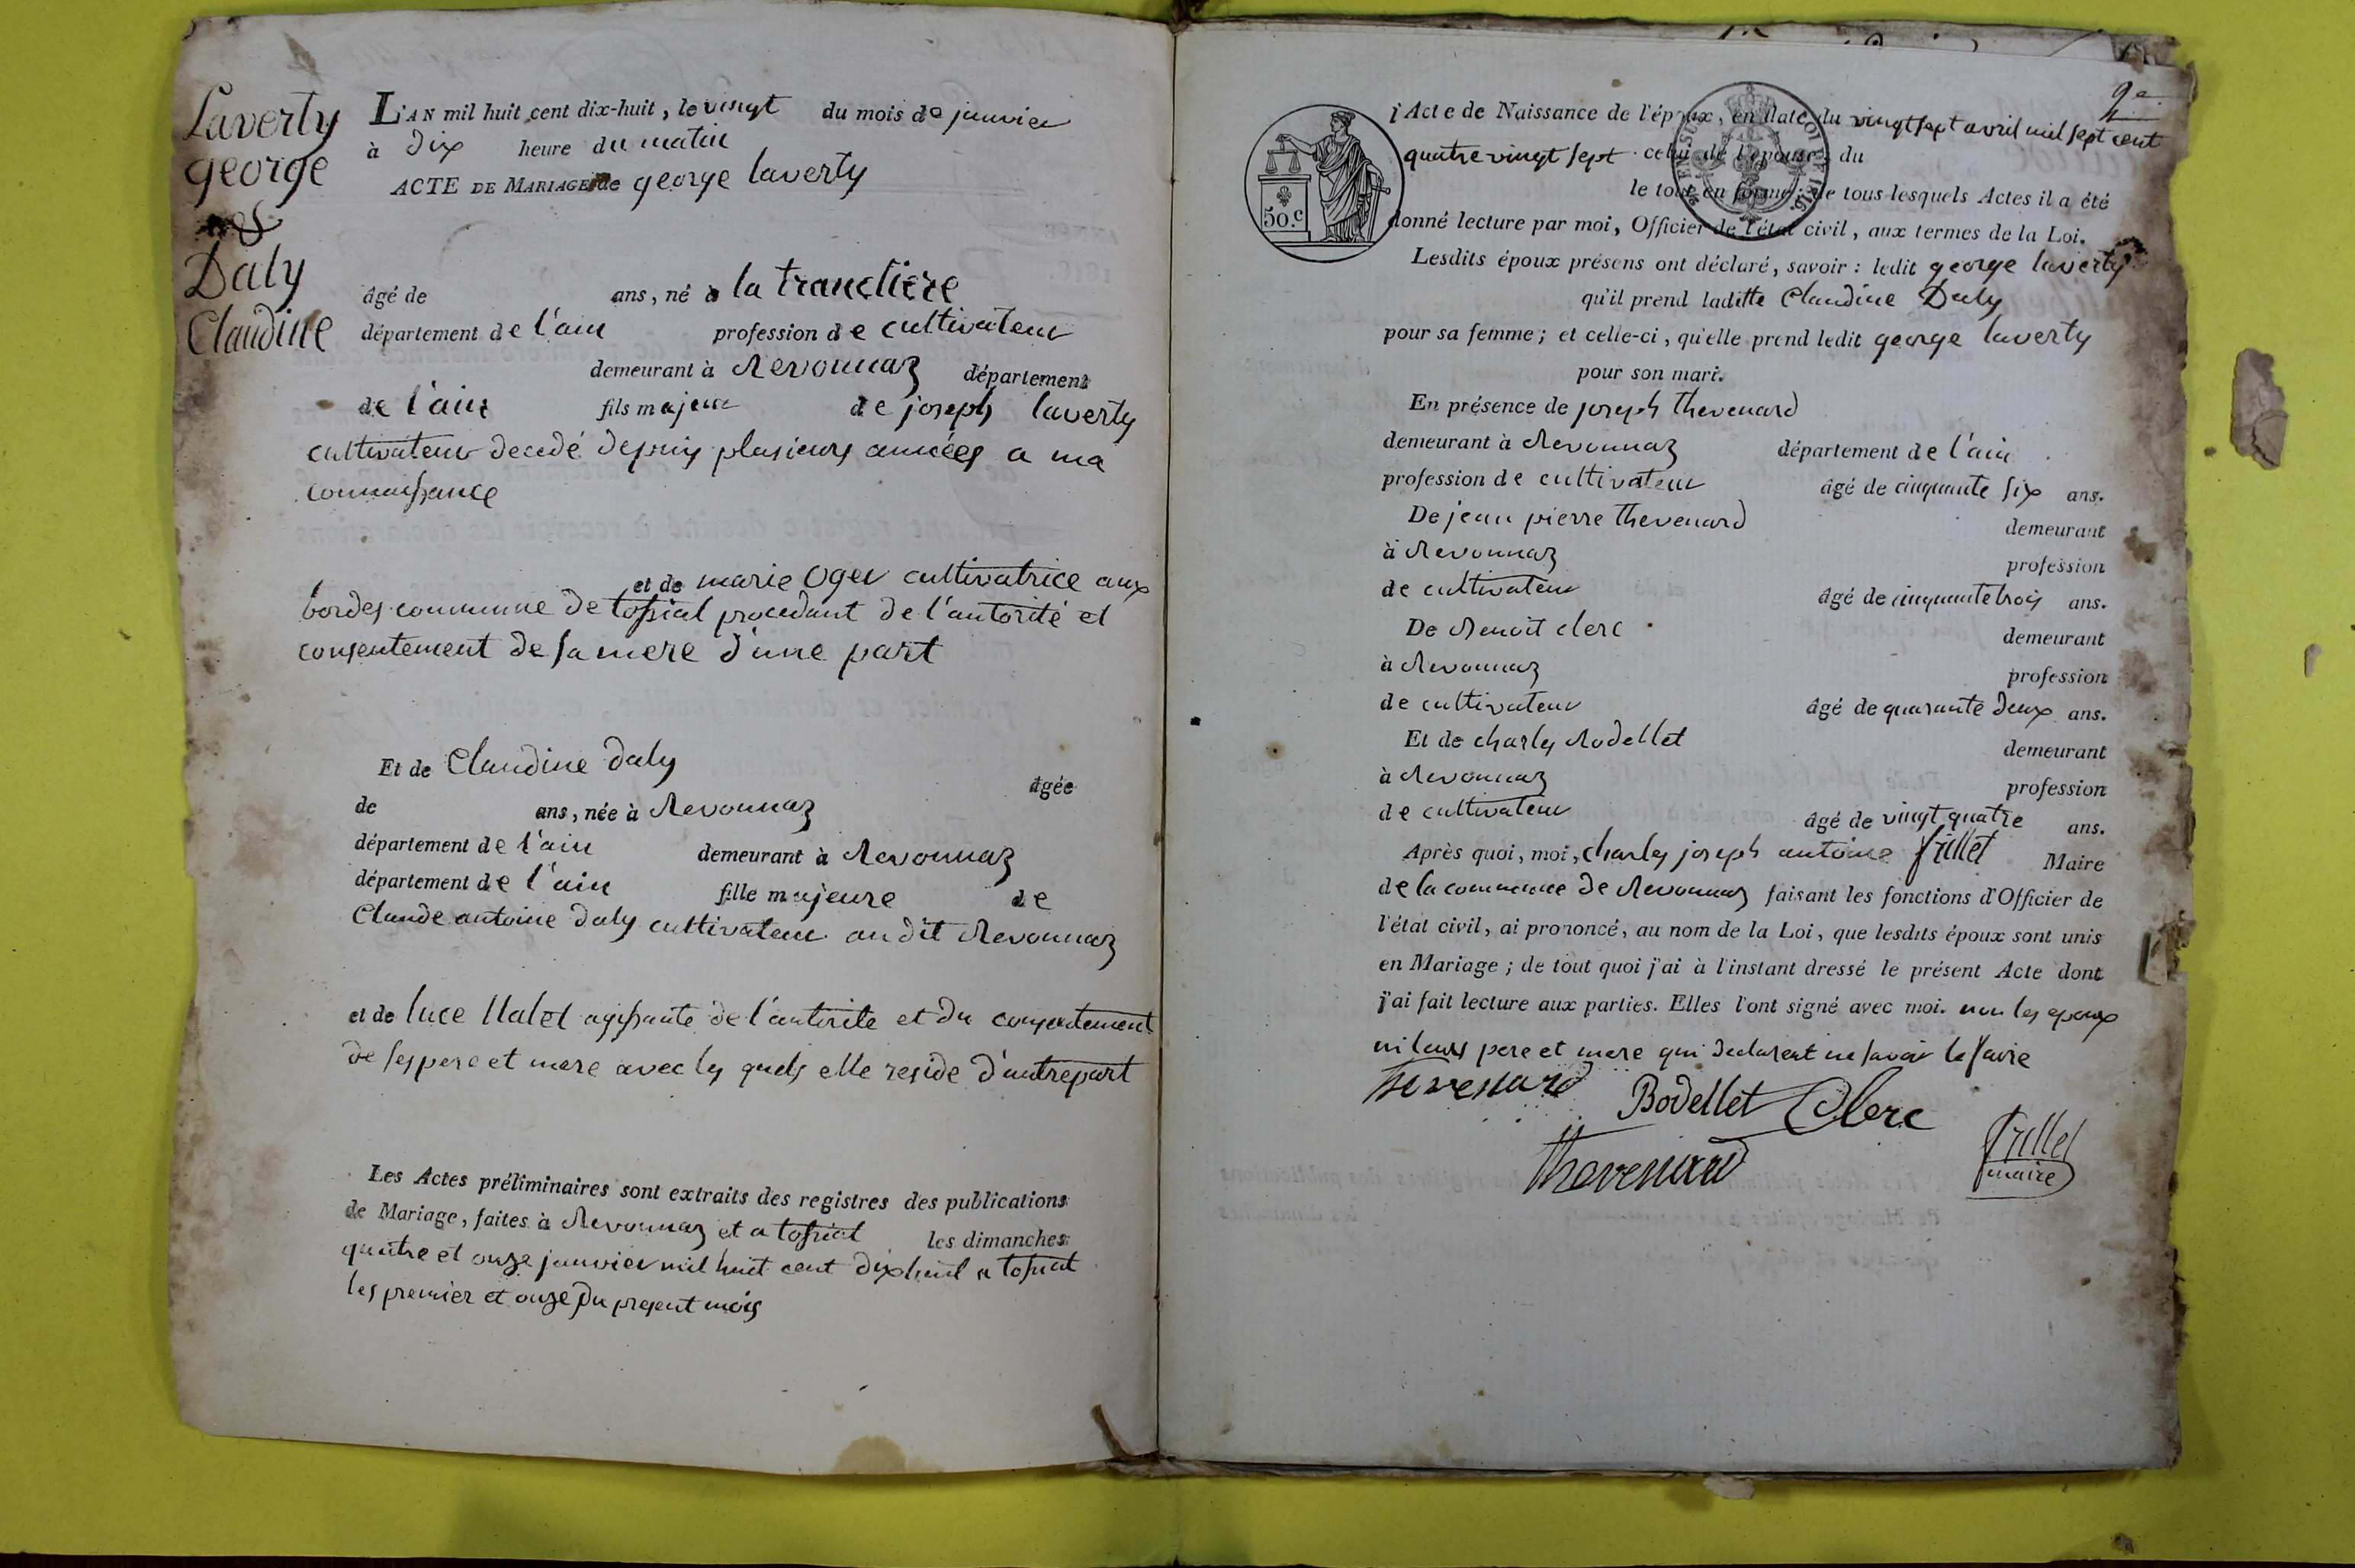 Laverty
george
&
Daly
Claudine
L'AN mil huit cent dix-huit, le vingt du mois de janvier
à dix heure du matin
ACTE DE MARIAGE de george laverty
âgé de ans, né à la trancliere
département de l'ain profession de cultivateur
demeurant à Revonnaz département
de l'ain fils majeur de joseph laverty
cultivateur decedé depuis plusieurs années a ma
connaissance
et de marie Oger cultivatrice aux
bordes commune de tossiat procedant de l'autorité et
consentement de sa mere d'une part
Et de Claudine daly âgée
de ans, née à Revonnaz
département de l'ain demeurant à Revonnaz
département de l'ain fille majeure de
Claude antoine daly cultivateur au dit Revonnaz
et de luce agissante de l'autorite et du consentement
de ses pere et mere avec les quels elle reside d'autre part
Les Actes préliminaires sont extraits des registres des publications
de Mariage, faites à Revonnaz et a tossiat les dimanches
quatre et onze janvier mil huit cent dix huit a tossiat
les premier et onze du present mois
2e
l'Acte de Naissance de l'époux, en date du vingt sept avril mil sept cent
quatre vingt sept celui de l'épouse, du
le tout en forme; de tous lesquels Actes il a été
donné lecture par moi, Officier de l'état civil, aux termes de la Loi.
50.c
Lesdits époux présens ont déclaré, savoir : ledit george laverty
qu'il prend laditte Claudine Daly
pour sa femme; et celle-ci, qu'elle prend ledit george laverty
pour son mari.
En présence de joseph thevenard
demeurant à Revonnaz département de l'ain
profession de cultivateur âgé de cinquante six ans.
De jean pierre thevenard demeurant
à Revonnaz profession
de cultivateur âgé de cinquante trois ans.
De Benoit clerc demeurant
à Revonnaz profession
de cultivateur âgé de quarante deux ans.
Et de charles Bodellet demeurant
à Revonnaz profession
de cultivateur âgé de vingt quatre ans.
Après quoi, moi, charles joseph antoine frillet Maire
de la commune de Revonnaz faisant les fonctions d'Officier de
l'état civil, ai prononcé, au nom de la Loi, que lesdits époux sont unis
en Mariage; de tout quoi j'ai à l'instant dressé le présent Acte dont
j'ai fait lecture aux parties. Elles l'ont signé avec moi. non les epoux
ni leurs pere et mere qui declarent ne savoir le faire
thevenard Bodellet Clerc
thevenard frillet
maire